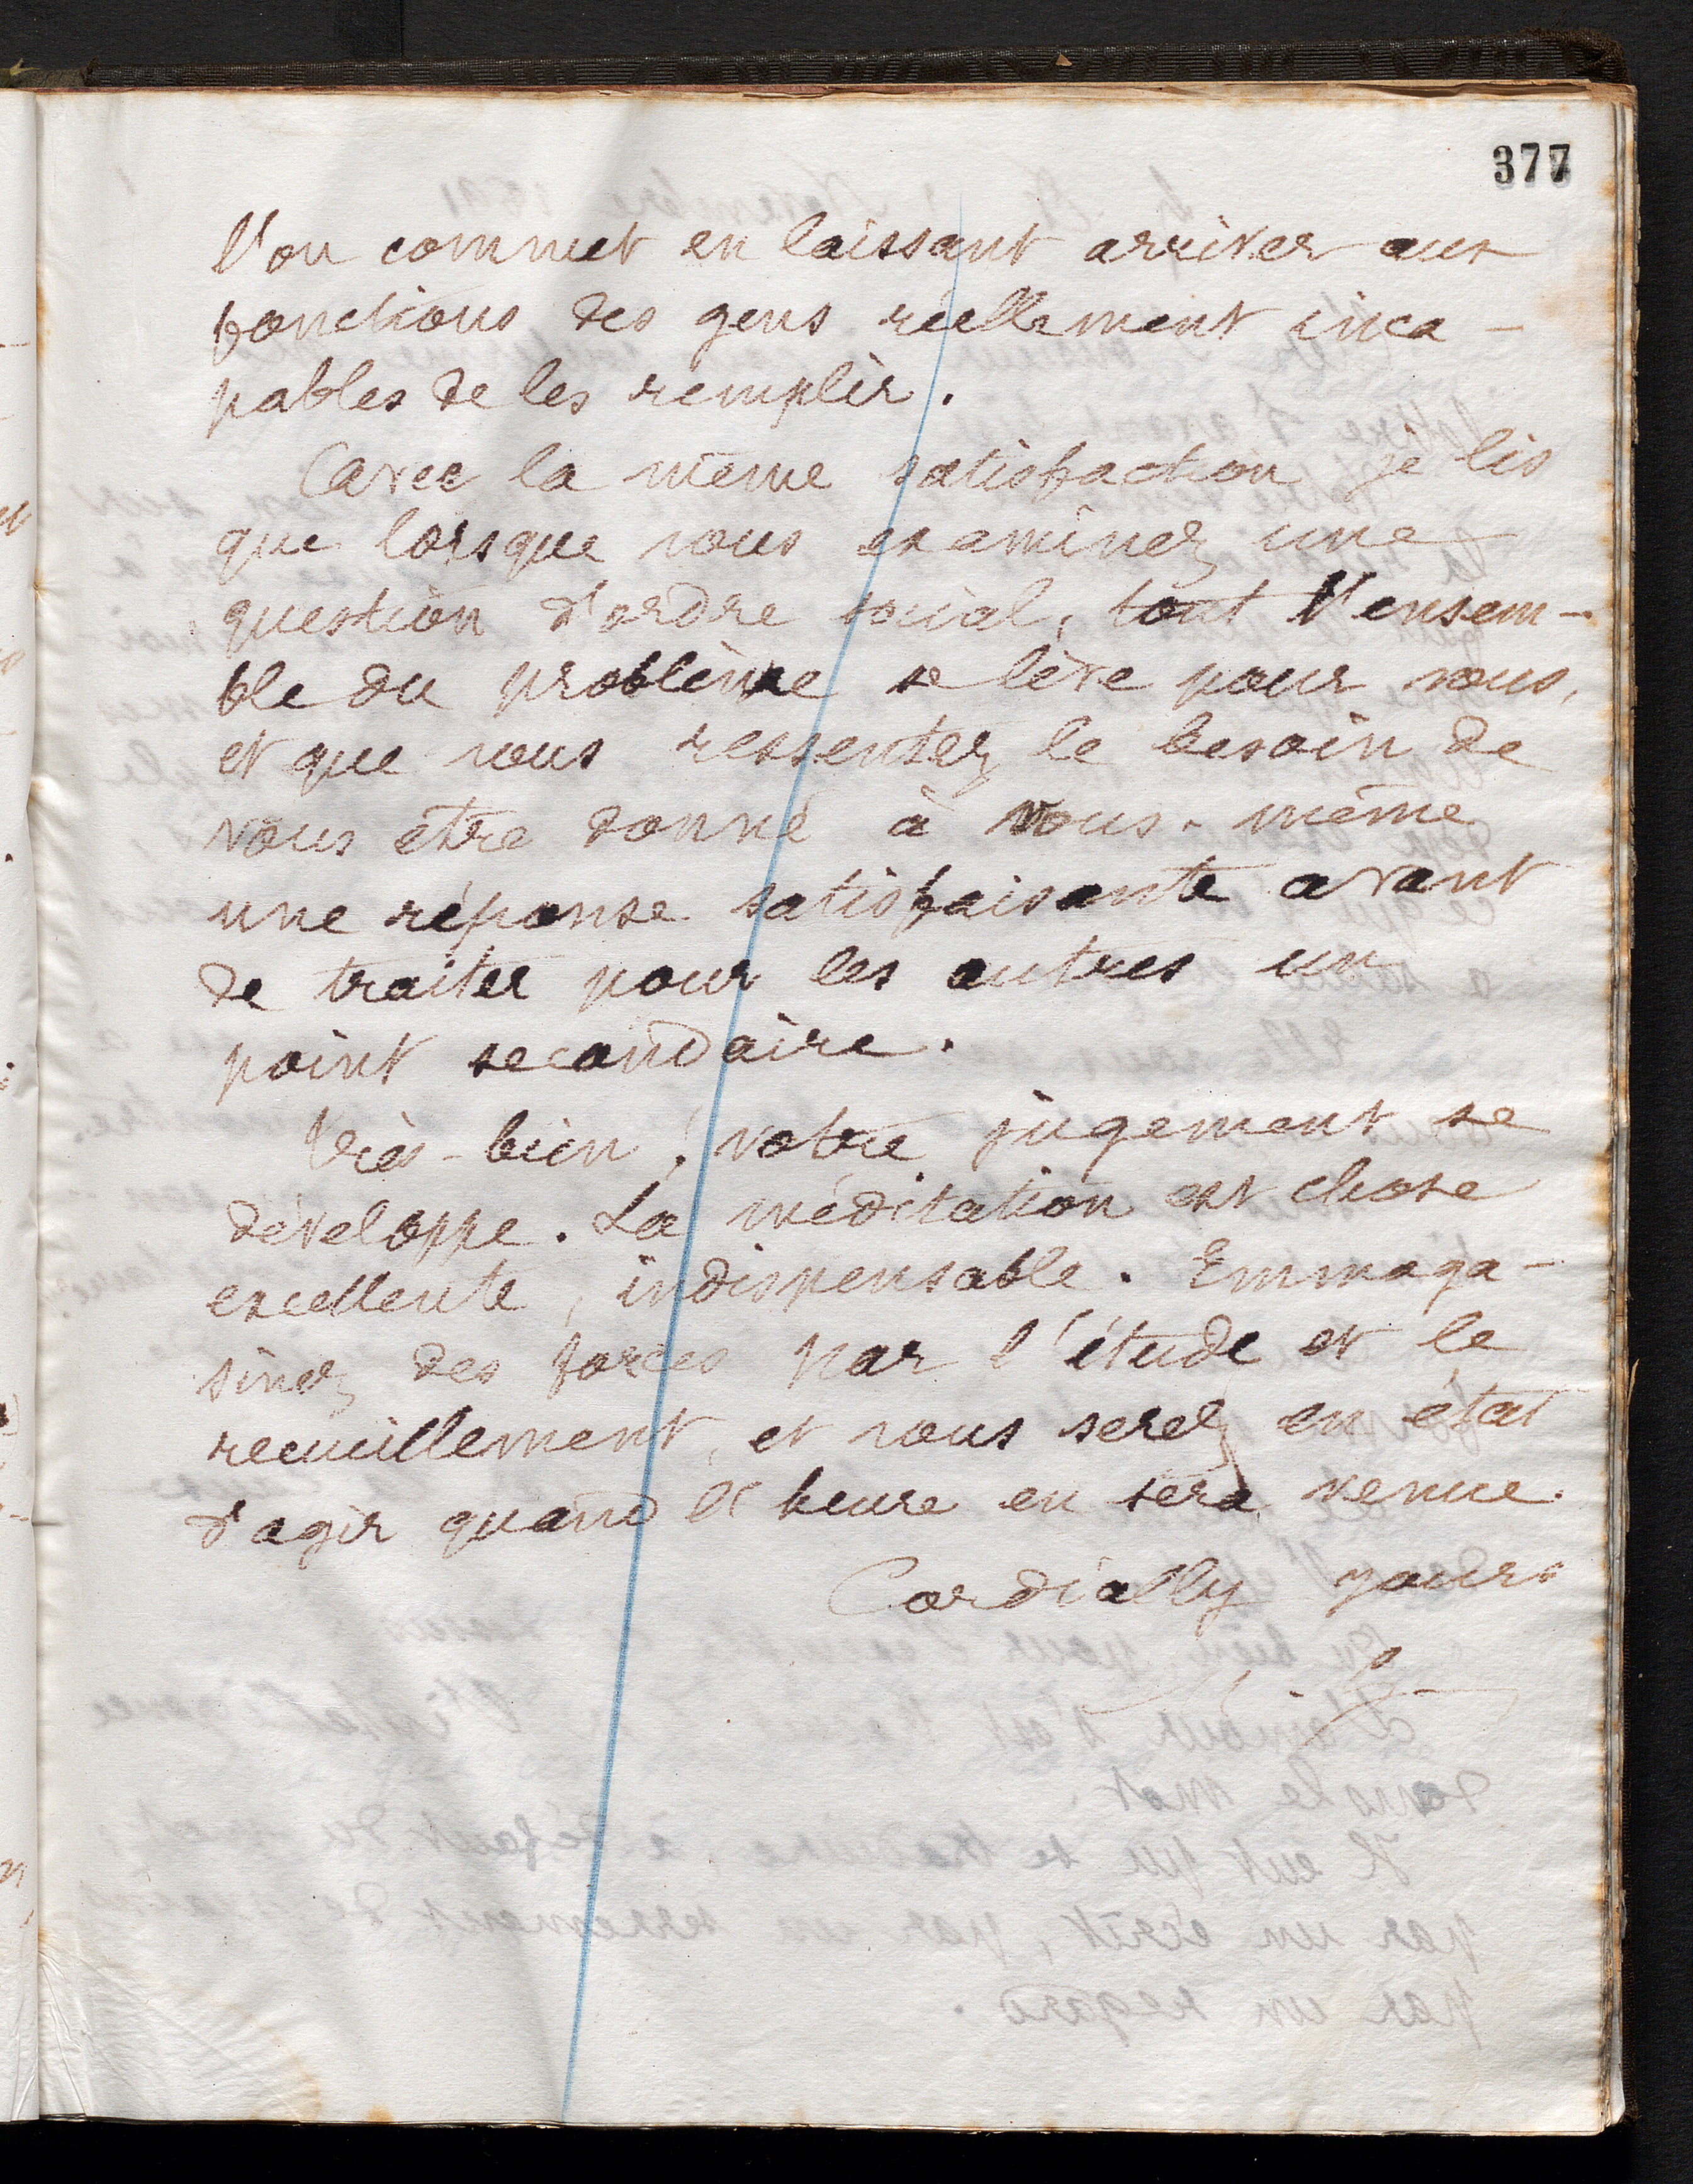 377
l'on commet en laissant arriver aux
fonctions des gens réellement inca-
pables de les remplir.
Avec la même satisfaction je lis
que lorsque vous examinez une
question d'ordre social, tout l'ensem-
ble du problème se lève pour vous,
et que vous ressentez le besoin de
vous être donné à vous-même
une réponse satisfaisante avant
de traiter pour les autres un
point secondaire.
Très-bien! votre jugement se
développe. La méditation est chose
excellente, indispensable. Emmaga-
sinez des forces par l'étude et le
recueillement, et vous serez en état
d'agir quand l'heure en sera venue.
Cordially yours